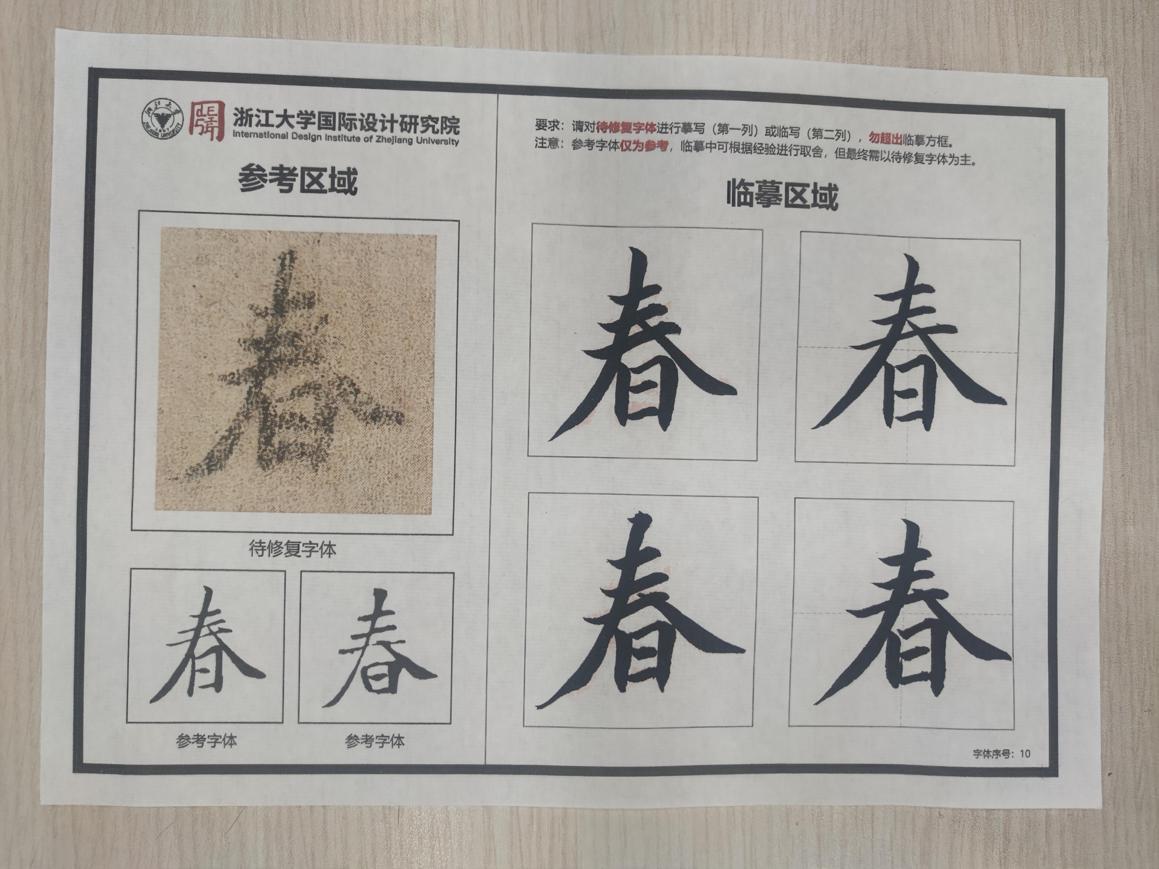 浙江大学国际设计研究院
International Design Institute of Zhejiang University
参考区域
春
待修复字体
春
春
参考字体
参考字体
要求：请对待修复字体进行摹写（第一列）或临写（第二列），勿超出临摹方框。
注意：参考字体仅为参考，临摹中可根据经验进行取舍，但最终需以待修复字体为主。
临摹区域
春
春
春
春
字体序号：10